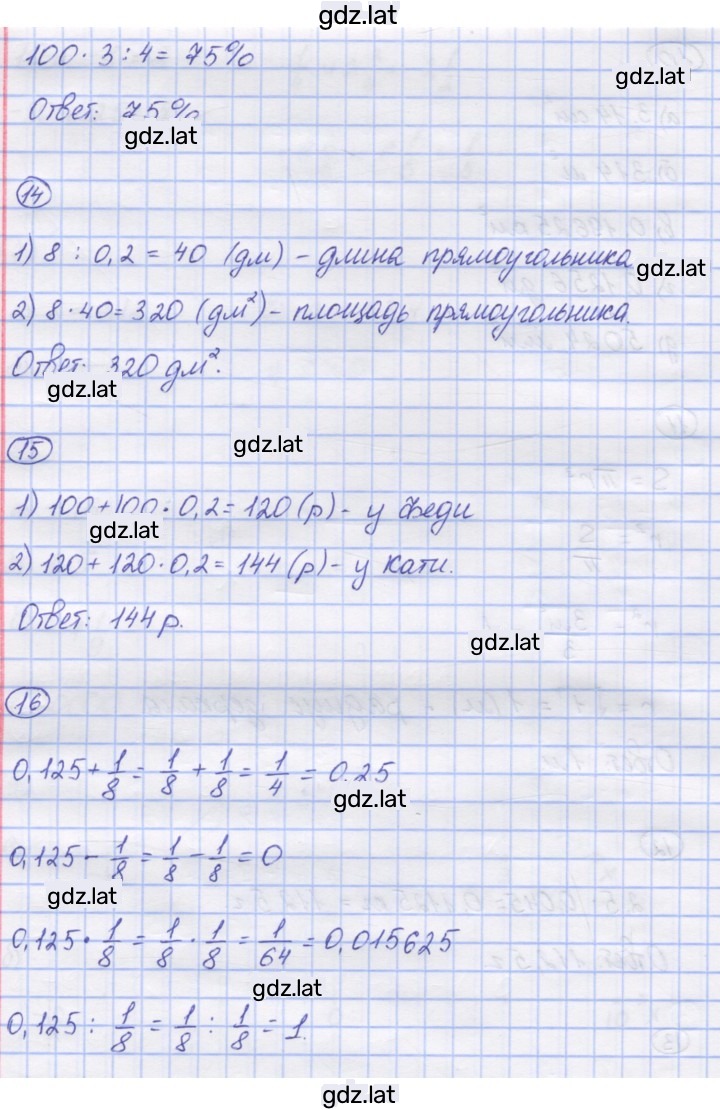 gdz.lat
100 · 3 : 4 = 75%
gdz.lat
Ответ: 75%
gdz.lat
14
1) 8 : 0,2 = 40 (дм) - длина прямоугольника
gdz.lat
2) 8 · 40 = 320 (дм²) - площадь прямоугольника.
Ответ: 320 дм².
gdz.lat
gdz.lat
15
1) 100 + 100 · 0,2 = 120 (р) - у Феди
gdz.lat
2) 120 + 120 · 0,2 = 144 (р) - у Кати.
Ответ: 144 р.
gdz.lat
16
0,125 + 1/8 = 1/8 + 1/8 = 1/4 = 0.25
gdz.lat
0,125 - 1/8 = 1/8 - 1/8 = 0
gdz.lat
0,125 · 1/8 = 1/8 · 1/8 = 1/64 = 0,015625
gdz.lat
0,125 : 1/8 = 1/8 : 1/8 = 1.
gdz.lat